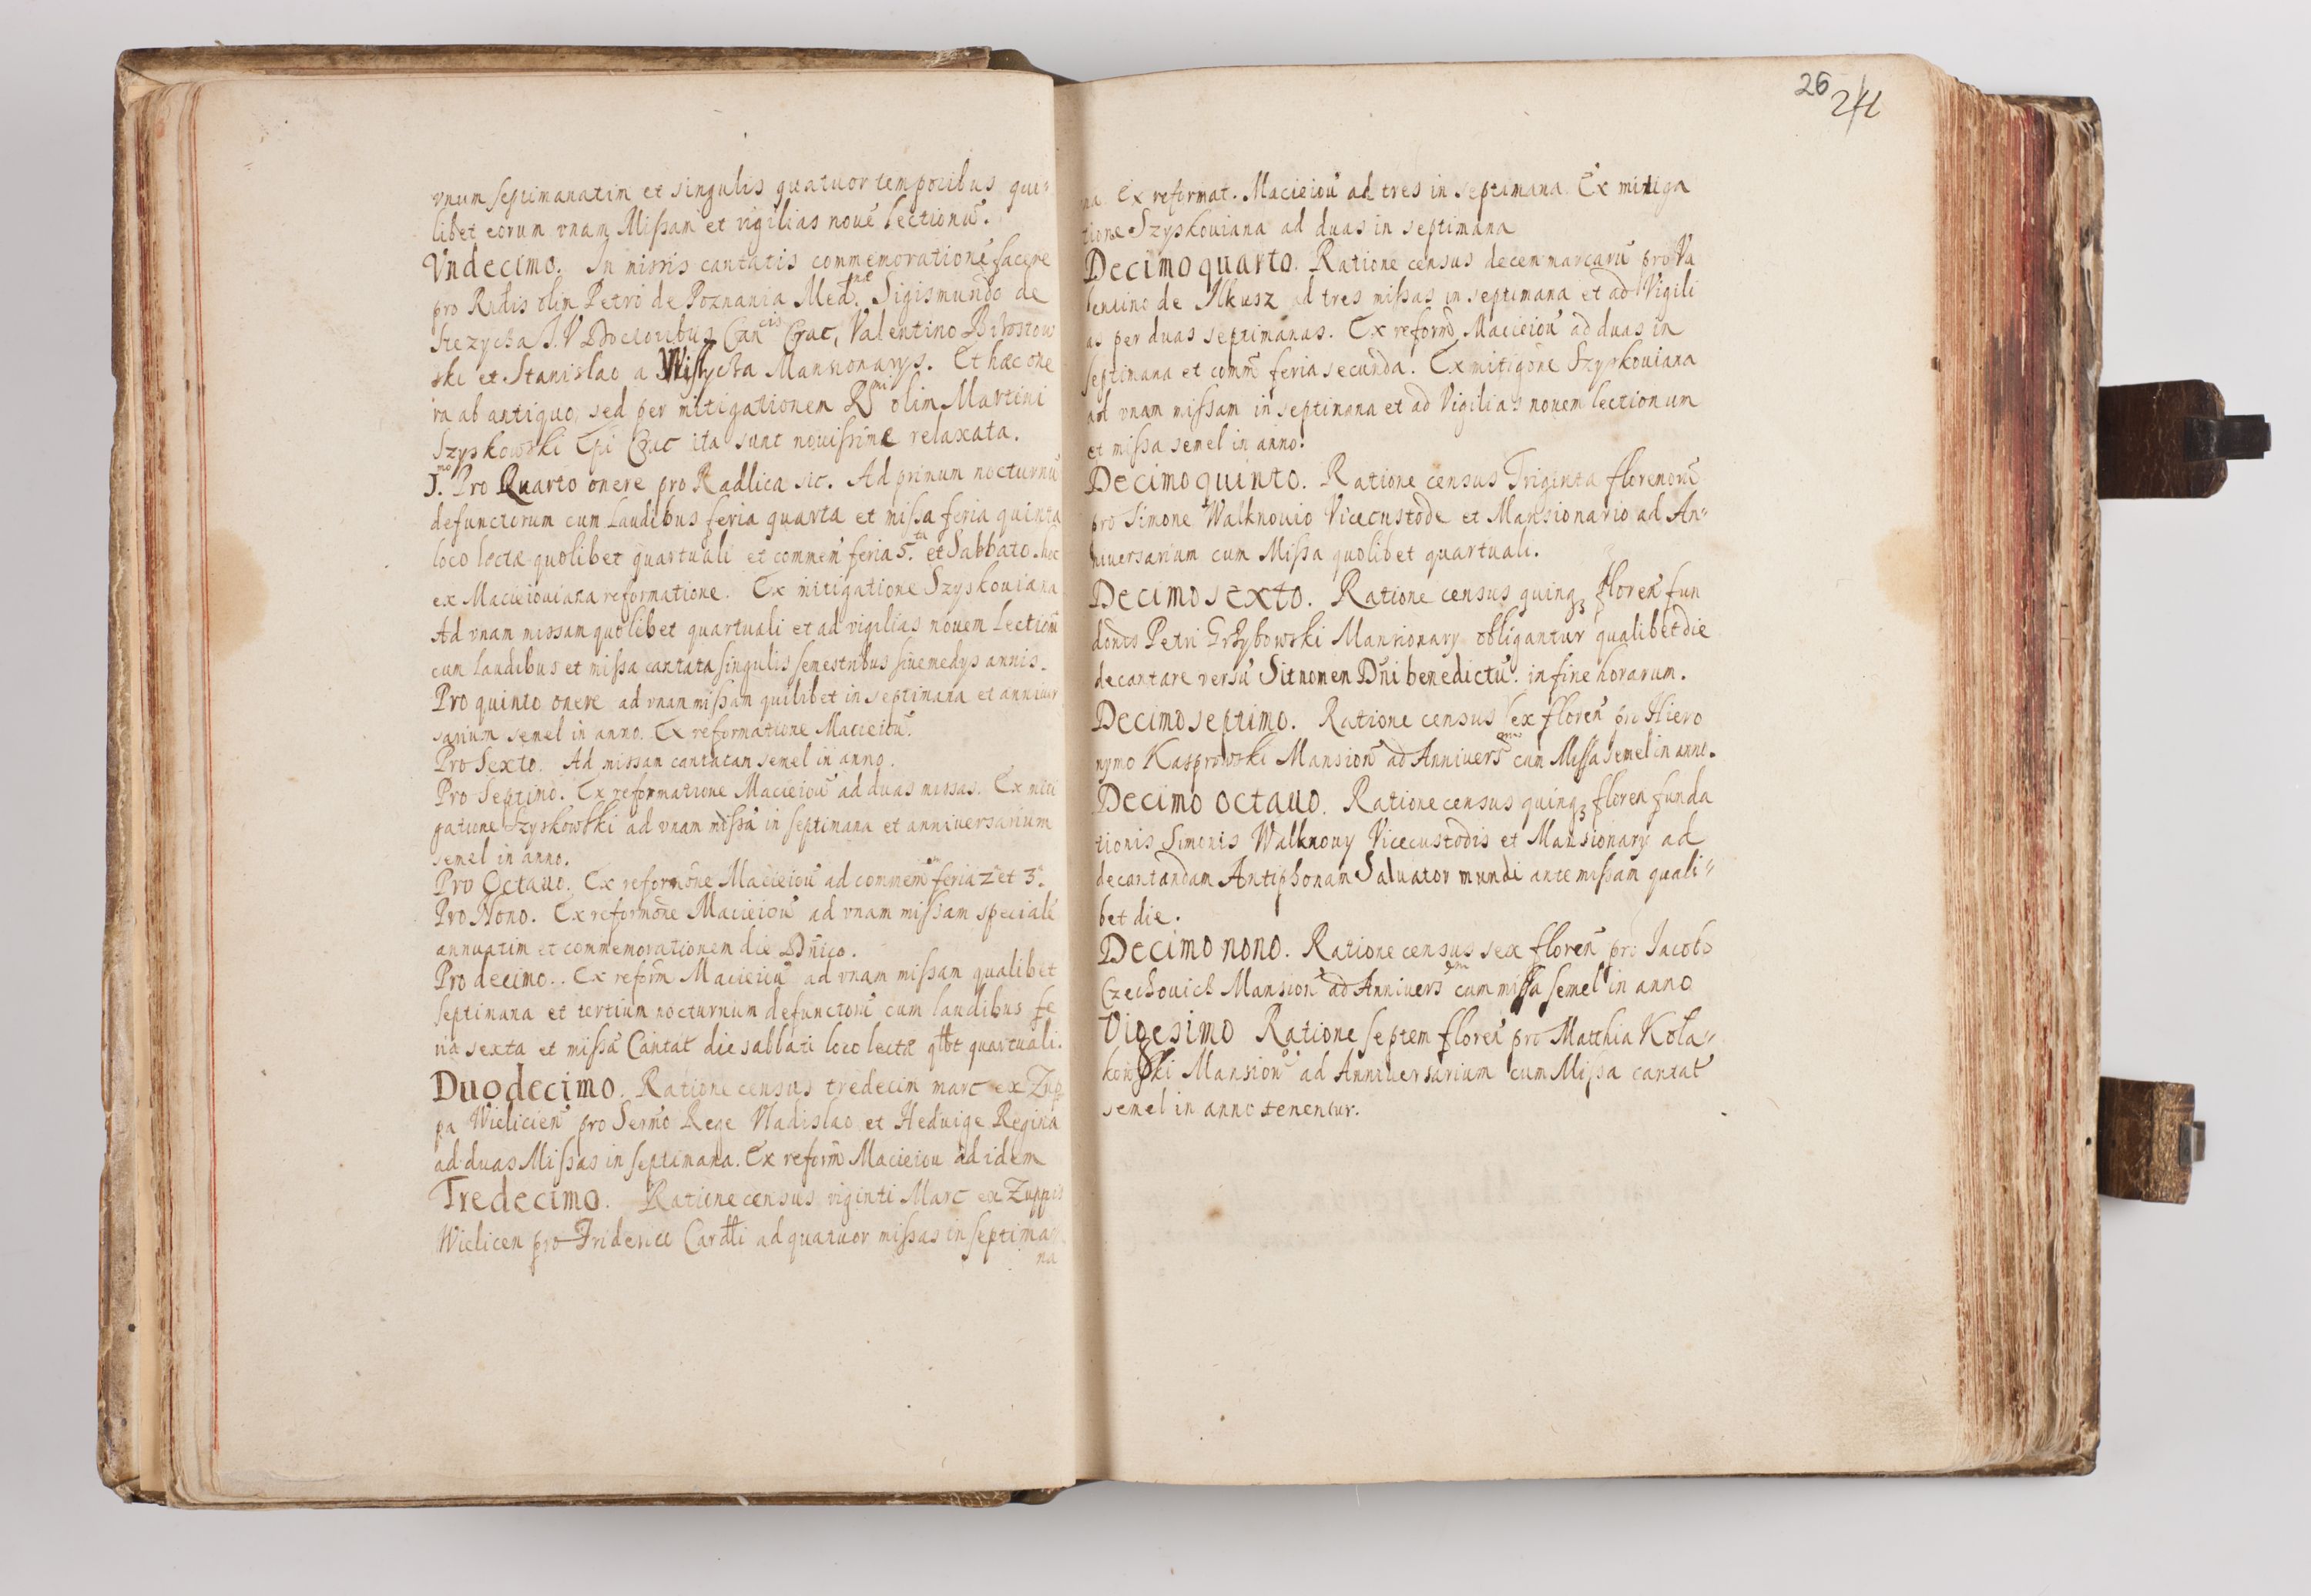 vnum septimanatim et singulis quatuor temporibus qui-
libet eorum vnam Missam et vigilias nouē lectionū.
Vndecimo. In missis cantatis commemorationē facere
pro Rndis olim Petro de Poznania Med.næ Sigismundo de
Stezycza I. V Doctoribus Can̄cis Crac, Valentino Bibrstow
ski et Stanislao a Wislycza Mansionarys. Et hæc one
ra ab antiquo, sed per mitigationem Rmi olim Martini
Szyskowski Epi Crac ita sunt nouissime relaxata.
Imo. Pro Quarto onere pro Radlica sic. Ad primum nocturnū
defunctorum cum Laudibus feria quarta et missa feria quinta
loco lectæ quolibet quartuali et commem̄ feria 5.ta et Sabbato. hoc
ex Macieiouiana reformatione. Ex mitigatione Szyskouiana
Ad vnam missam quolibet quartuali et ad vigilias nouem Lectionū
cum Laudibus et missa cantata singulis semestribus siue medys annis.
Pro quinto onere ad vnam missam quilibet in septimana et anniuer
sarium semel in anno. Ex reformatione Macieioū.
Pro Sexto. Ad missam cantatam semel in anno.
Pro Septimo. Ex reformatione Macieioū ad duas missas. Ex miti
gatione Szyskowski ad vnam missā in septimana et anniuersarium
semel in anno.
Pro Octauo. Ex reformōne Macieioū ad commem̄ feria 2 et 3.
Pro Nono. Ex reformōne Macieioū ad vnam missam specialē
annuatim et commemorationem die Dn̄ico.
Pro decimo.. Ex reform̄ Macieioū ad vnam missam qualibet
septimana et tertium nocturnum defunctorū cum laudibus fe
ria sexta et missā Cantat die sabbati loco lectæ qlbt quartuali.
Duodecimo. Ratione census tredecim marc ex Zup
pa Wielicien̄ pro Sermo Rege Vladislao et Heduige Regina
ad duas Missas in septimana. Ex reform̄ Macieiou ad idem
Tredecimo. Ratione census viginti Marc ex Zuppis
Wielicen pro Friderico Cardli ad quatuor missas in septima
na
26 241
na Ex reformat. Macieioū ad tres in septimana. Ex mitiga
tione Szyskouiana ad duas in septimana
Decimo quarto. Ratione census decem marcarū pro Va
lentino de Ilkusz ad tres missas in septimana et ad Vigili
as per duas septimanas. Ex reform̄ Macieioū ad duas in
septimana et comm̄ feria secunda. Ex mitigōne Szyskouiana
ad vnam missam in septimana et ad Vigilias nouem lectionum
et missa semel in anno.
Decimo quinto. Ratione census Triginta florenorū
pro Simone Walknouio Vicecustode et Mansionario ad An-
niuersarium cum Missa quolibet quartuali.
Decimo sexto. Ratione census quinq3 floren̄ fun
donis Petri Grzybowski Mansionary obligantur qualibet die
decantare versū Sit nomen Dn̄i benedictū. in fine horarum.
Decimo septimo. Ratione census sex floren̄ pro Hiero
nymo Kasprowski Mansion̄ ad Anniuers cum Missa semel in anno.
Decimo octauo. Ratione census quinq3 floren funda
tionis Simonis Walknouy Vicecustodis et Mansionary ad
decantandam Antiphonam Saluator mundi ante missam quali-
bet die.
Decimo nono. Ratione census sex floren̄ pro Iacobo
Czechouich Mansion̄ ad Anniuers cum missa semel in anno
Vigesimo Ratione septem floren̄ pro Matthia Kola-
konski Mansion̄ ad Anniuersarium cum Missa cantat
semel in anno tenentur.